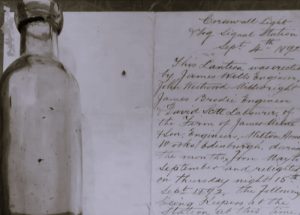 Corsewall Light
& Fog Signal Station
Sept 4th 1892
This Lantern was erected
by James Wells Engineer
John Westwood Millwright
James Brodie Engineer
David Scott Labourer, of
the Firm of James
& Son Engineers, Milton House
Works Edinburgh, during
the months from May to
September and relighted
on Thursday night 15th
Sept 1892. The following
being Keepers at the
Station at this time